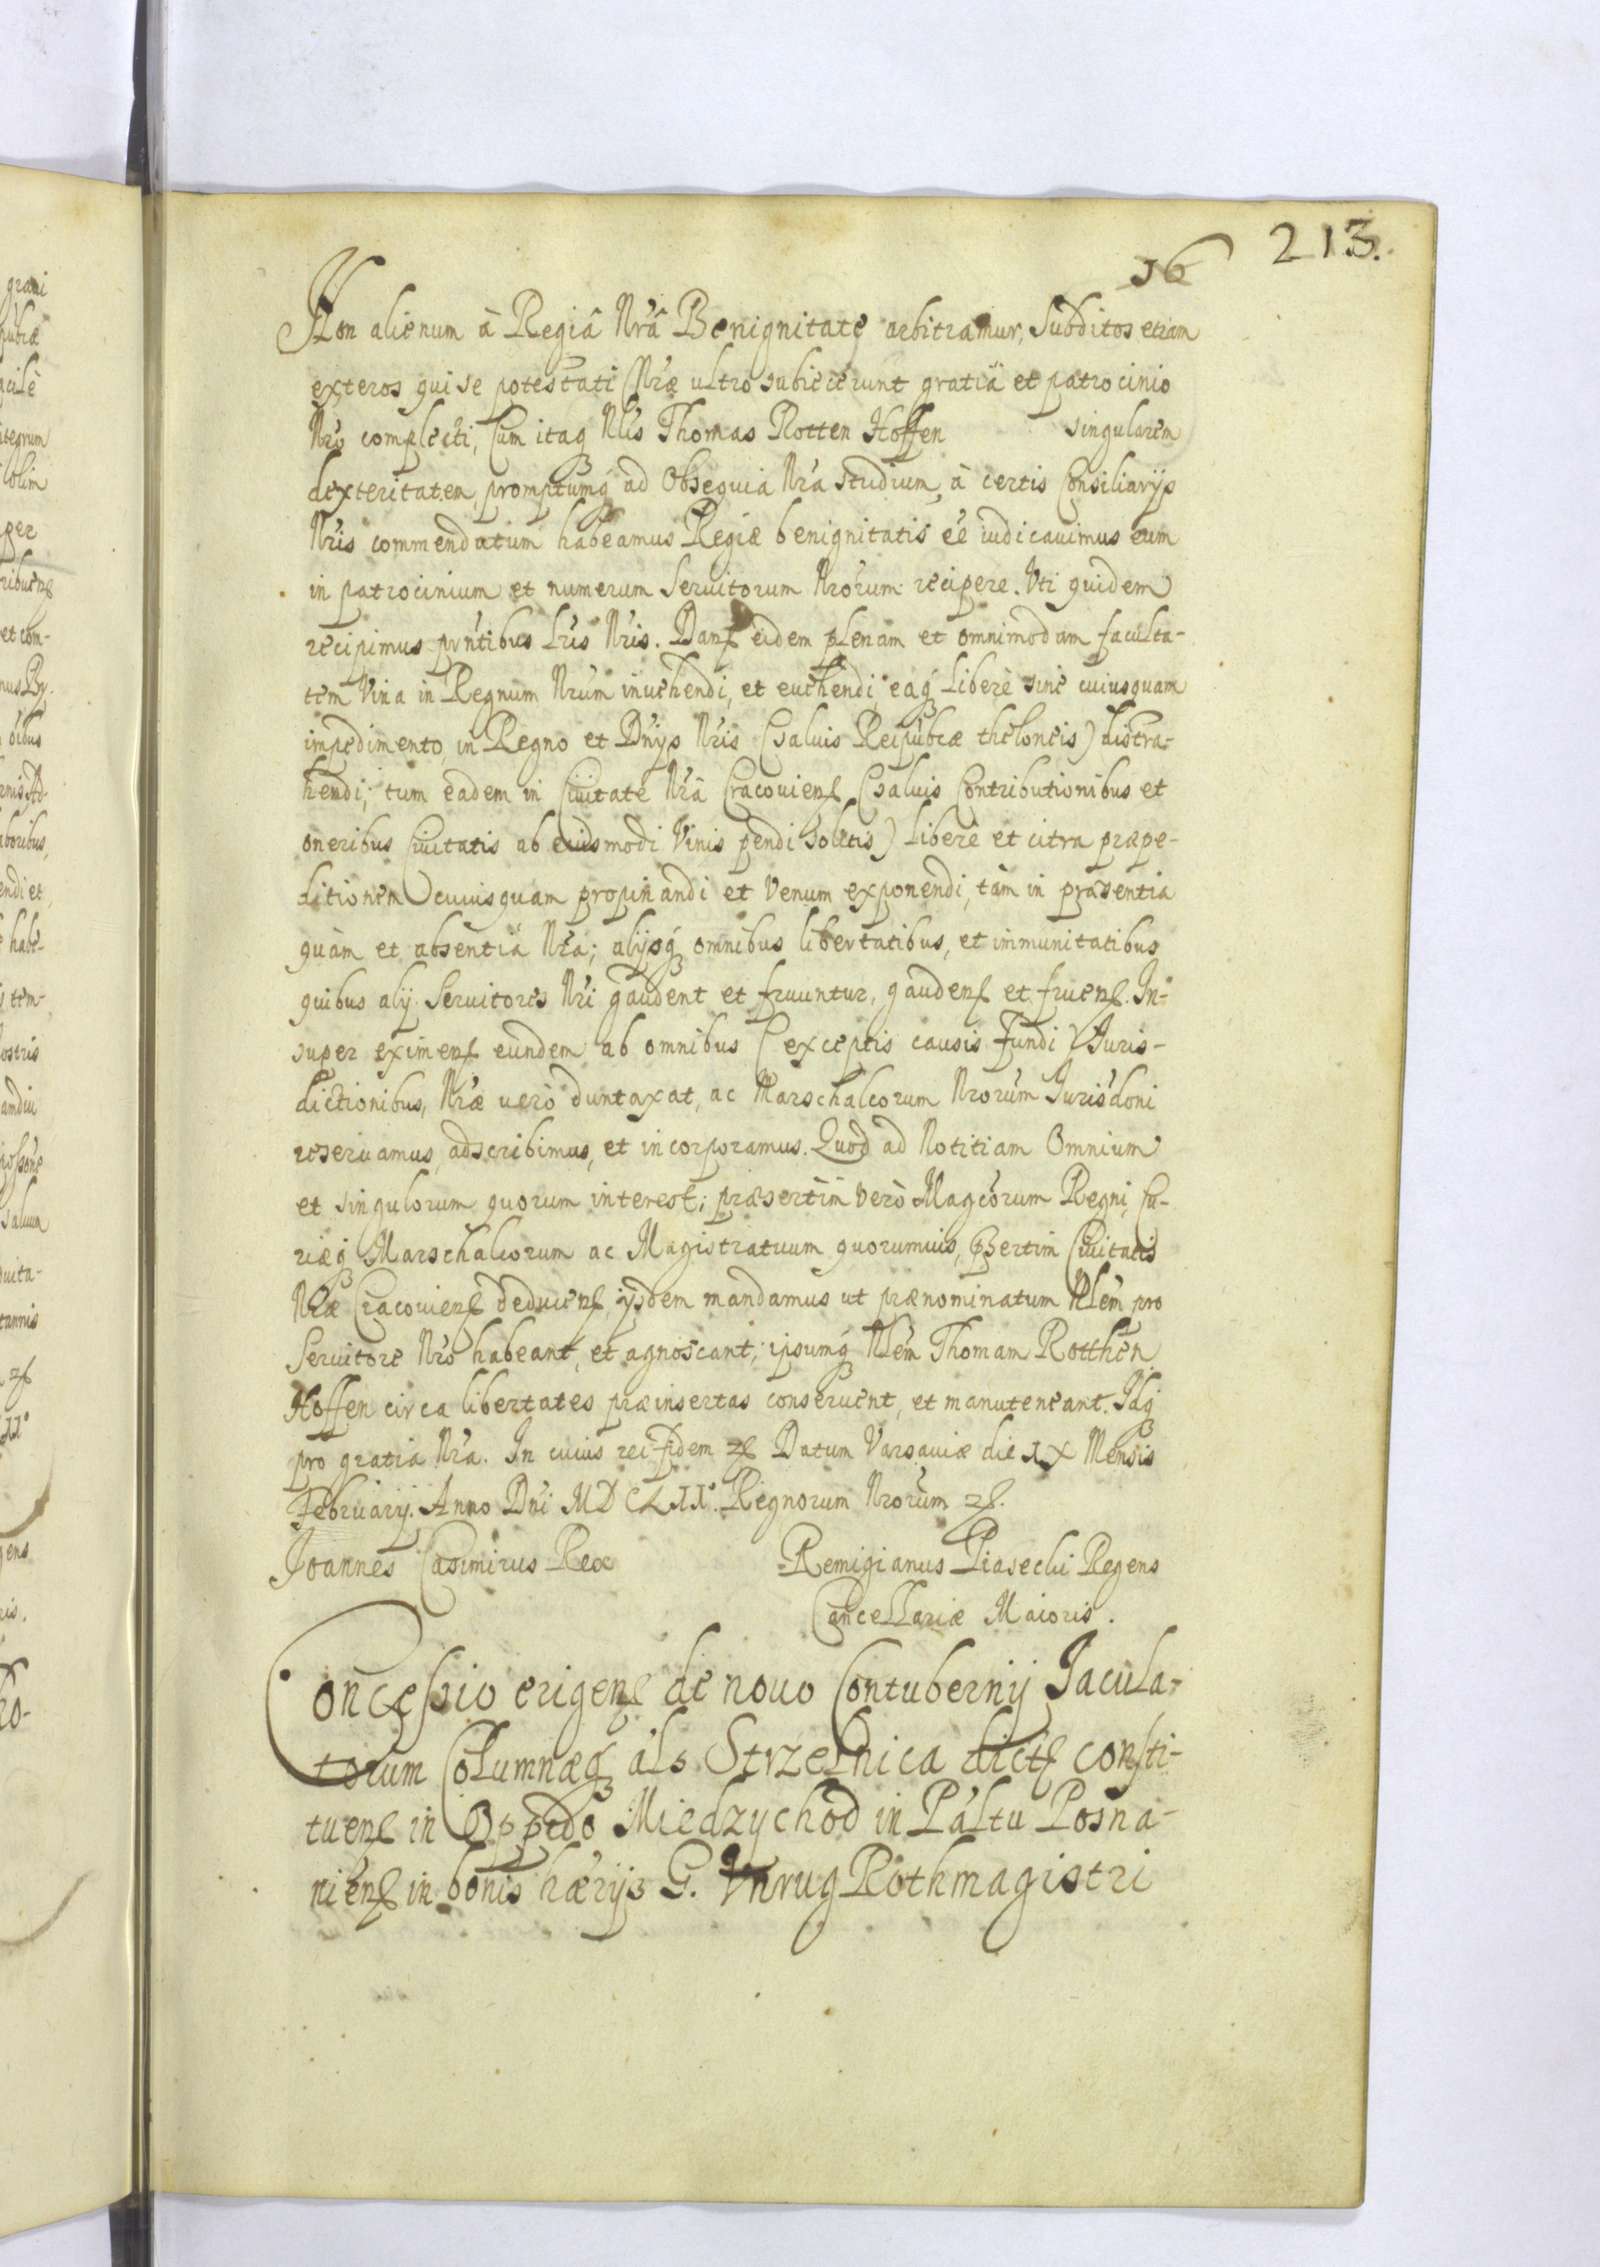 16
213.
Non alienum à Regiâ Nrâ Benignitate arbitramur, Subditos etiam
exteros qui se potestati Nræ ultro subiecerunt gratiâ et patrocinio
Nrô complecti, Cum itaq Nlis Thomas Rotten Hoffen singularem
dexteritatem, promptumq ad Obsequia Nra studium, à certis Consiliarijs
Nris commendatum habeamus Regiæ benignitatis ee iudicauimus eum
in patrocinium et numerum Seruitorum Nrorum recipere. Vti quidem
recipimus pntibus Lris Nris. Dan eidem plenam et omnimodam faculta-
tem Vina in Regnum Nrum inuehendi, et euehendi, eaq Liberè sine cuiusquam
impedimento, in Regno et Dnijs Nris (saluis Reipubcæ theloneis) distra-
hendi; tum eadem in Ciuitate Nrâ Cracouien (saluis Contributionibus et
oneribus Ciuitatis ab eiusmodi Vinis pendi solitis) Liberè et citra præpe-
ditionem cuiusquam propinandi et Venum exponendi, tàm in præsentia
quàm et absentiâ Nra; alijsq omnibus libertatibus, et immunitatibus
quibus alij Seruitores Nri gaudent et fruuntur, gauden et fruen. In-
super eximen eundem ab omnibus (exceptis causis Fundi) Juris-
dictionibus, Nræ verò duntaxat, ac Marschalcorum Nrorum Jurisdoni
reseruamus, adscribimus, et incorporamus. Quod ad Notitiam Omnium
et singulorum quorum interest; præsertim verò Magcorum Regni, Cu-
riæq Marschalcorum ac Magistratuum quorumuis, psertim Ciuitatis
Nræ Cracouien deducen, ijsdem mandamus ut prænominatum Nlem pro
Seruitore Nro habeant, et agnoscant; ipsumq Nlem Thomam Rotthen
Hoffen circa libertates præinsertas conseruent, et manuteneant. Idq
pro gratia Nra. In cuius rei fidem etc Datum Varsauiæ die IX Mensis
February. Anno Dni MDCLII°. Regnorum Nrorum etc.
Joannes Casimirus Rex
Remigianus Piasecki Regens
Cancellariæ Maioris.
Concessio erigen de nouo Contubernij Jacula-
torum Columnæq als Strzelnica dict consti-
tuen in Oppido Miedzychod in Paltu Posna-
nien in bonis hærijs G. Vnrug Rothmagistri